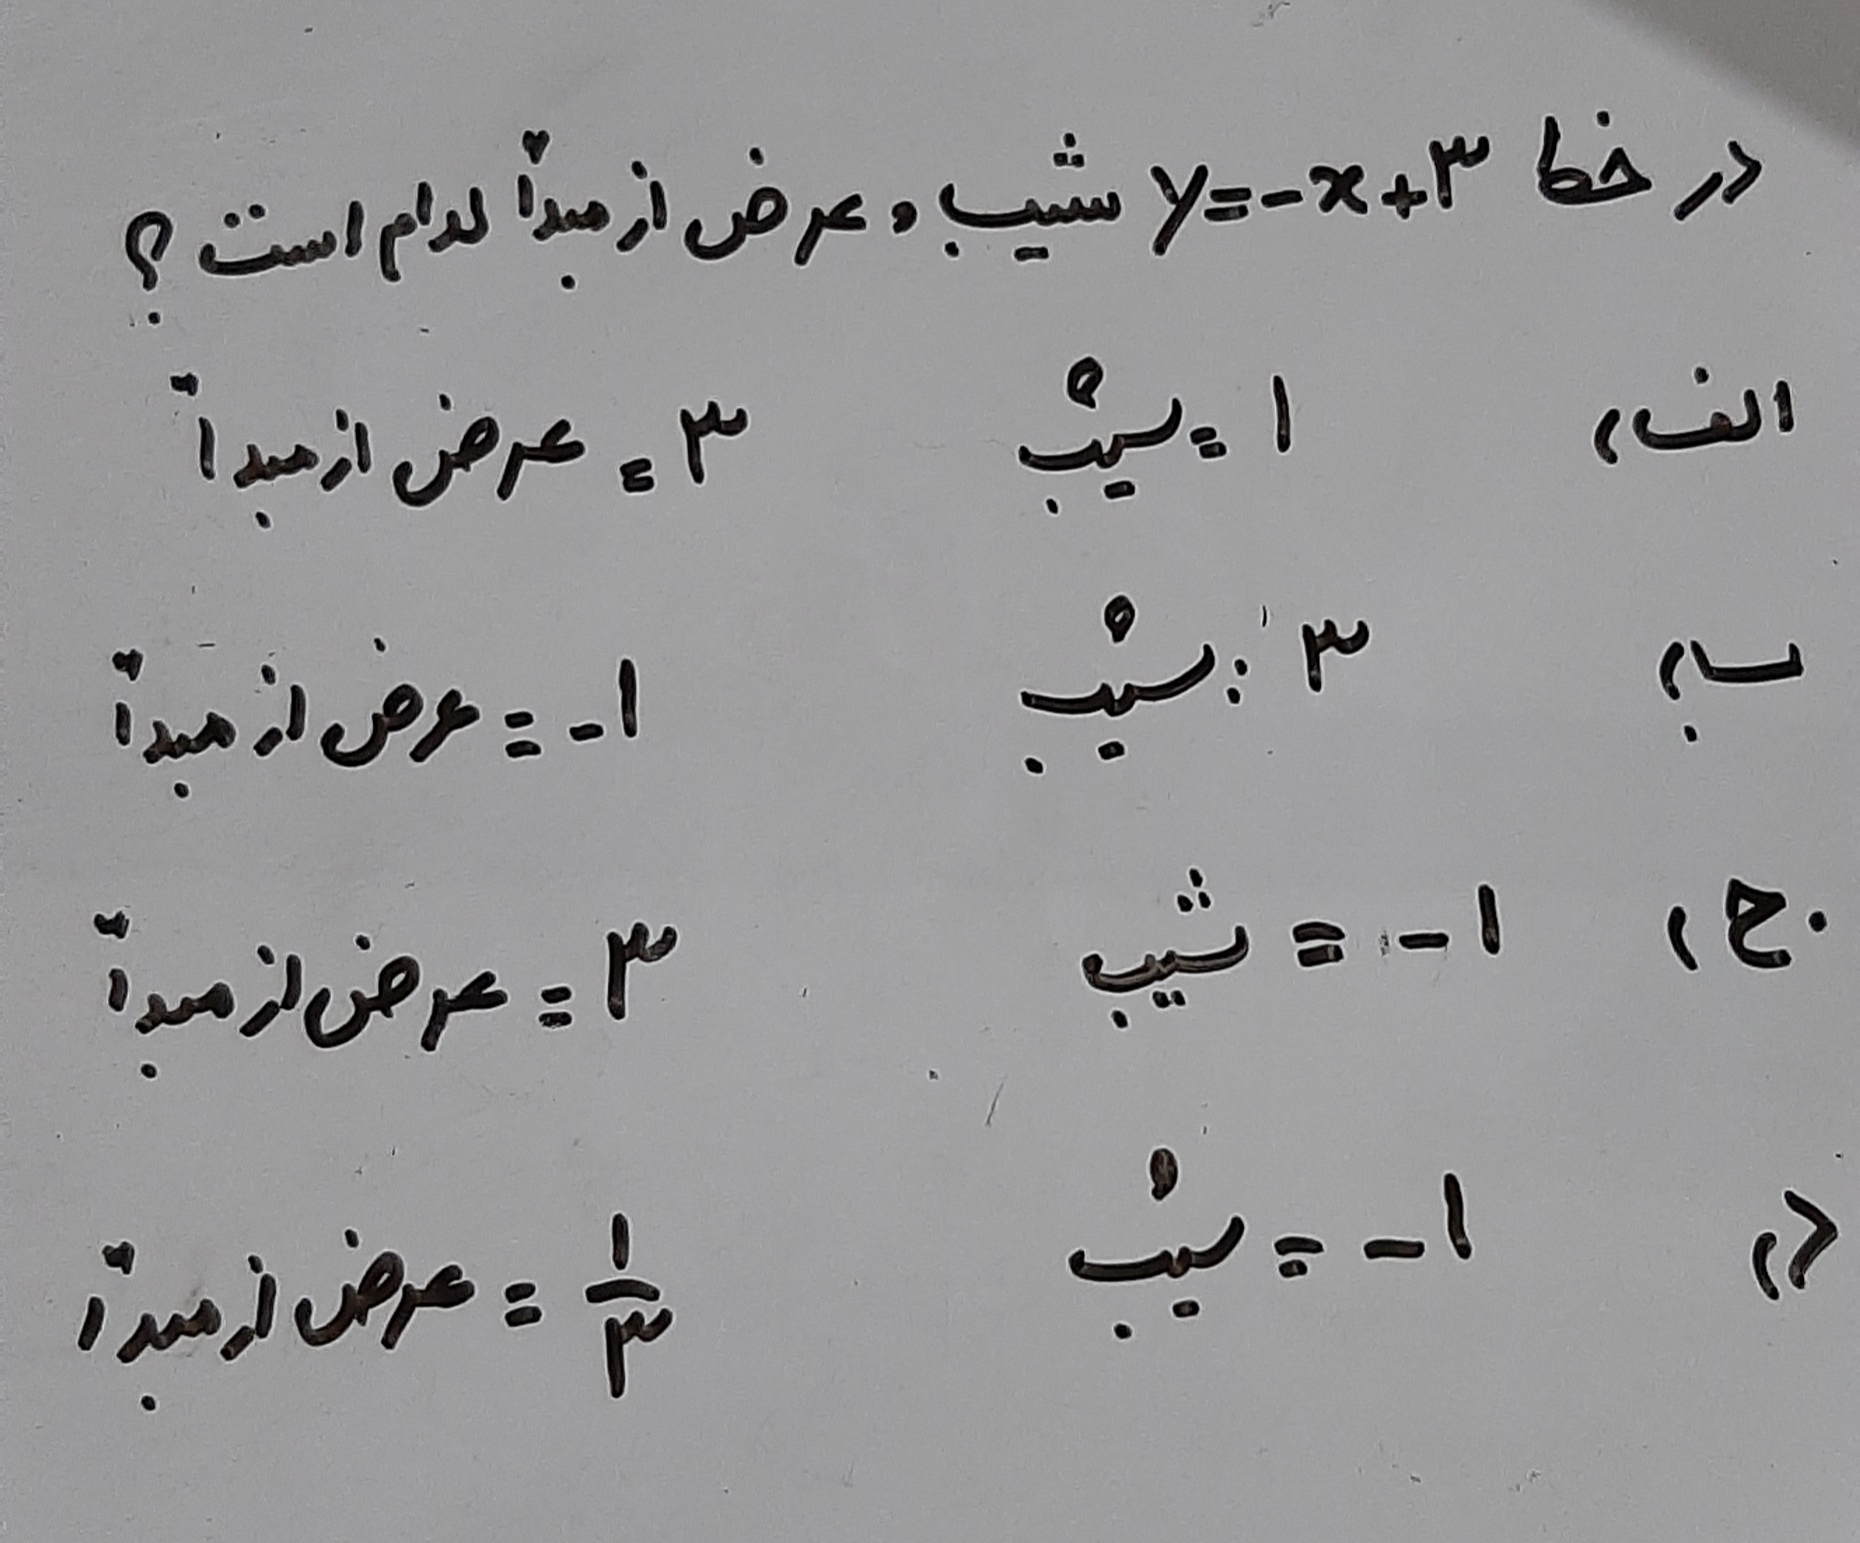 در خط y=-x+۳ شیب و عرض از مبدأ کدام است ؟
الف) ۱ = شیب ۳ = عرض از مبدأ
ب) ۳ = شیب -۱ = عرض از مبدأ
ج) -۱ = شیب ۳ = عرض از مبدأ
د) -۱ = شیب ۱/۳ = عرض از مبدأ